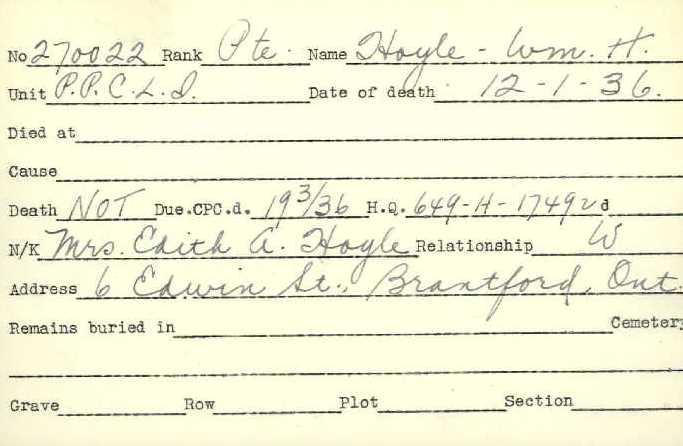 No 270022 Rank Pte. Name Hoyle - Wm. H.
Unit P.P.C.L.I. Date of death 12-1-36.
Died at
Cause
Death NOT Due.CPC.d. 19 3/36 H.Q. 649-H-17492 d
N/K Mrs. Edith A. Hoyle Relationship W
Address 6 Edwin St., Brantford, Ont.
Remains buried in Cemetery
Grave Row Plot Section